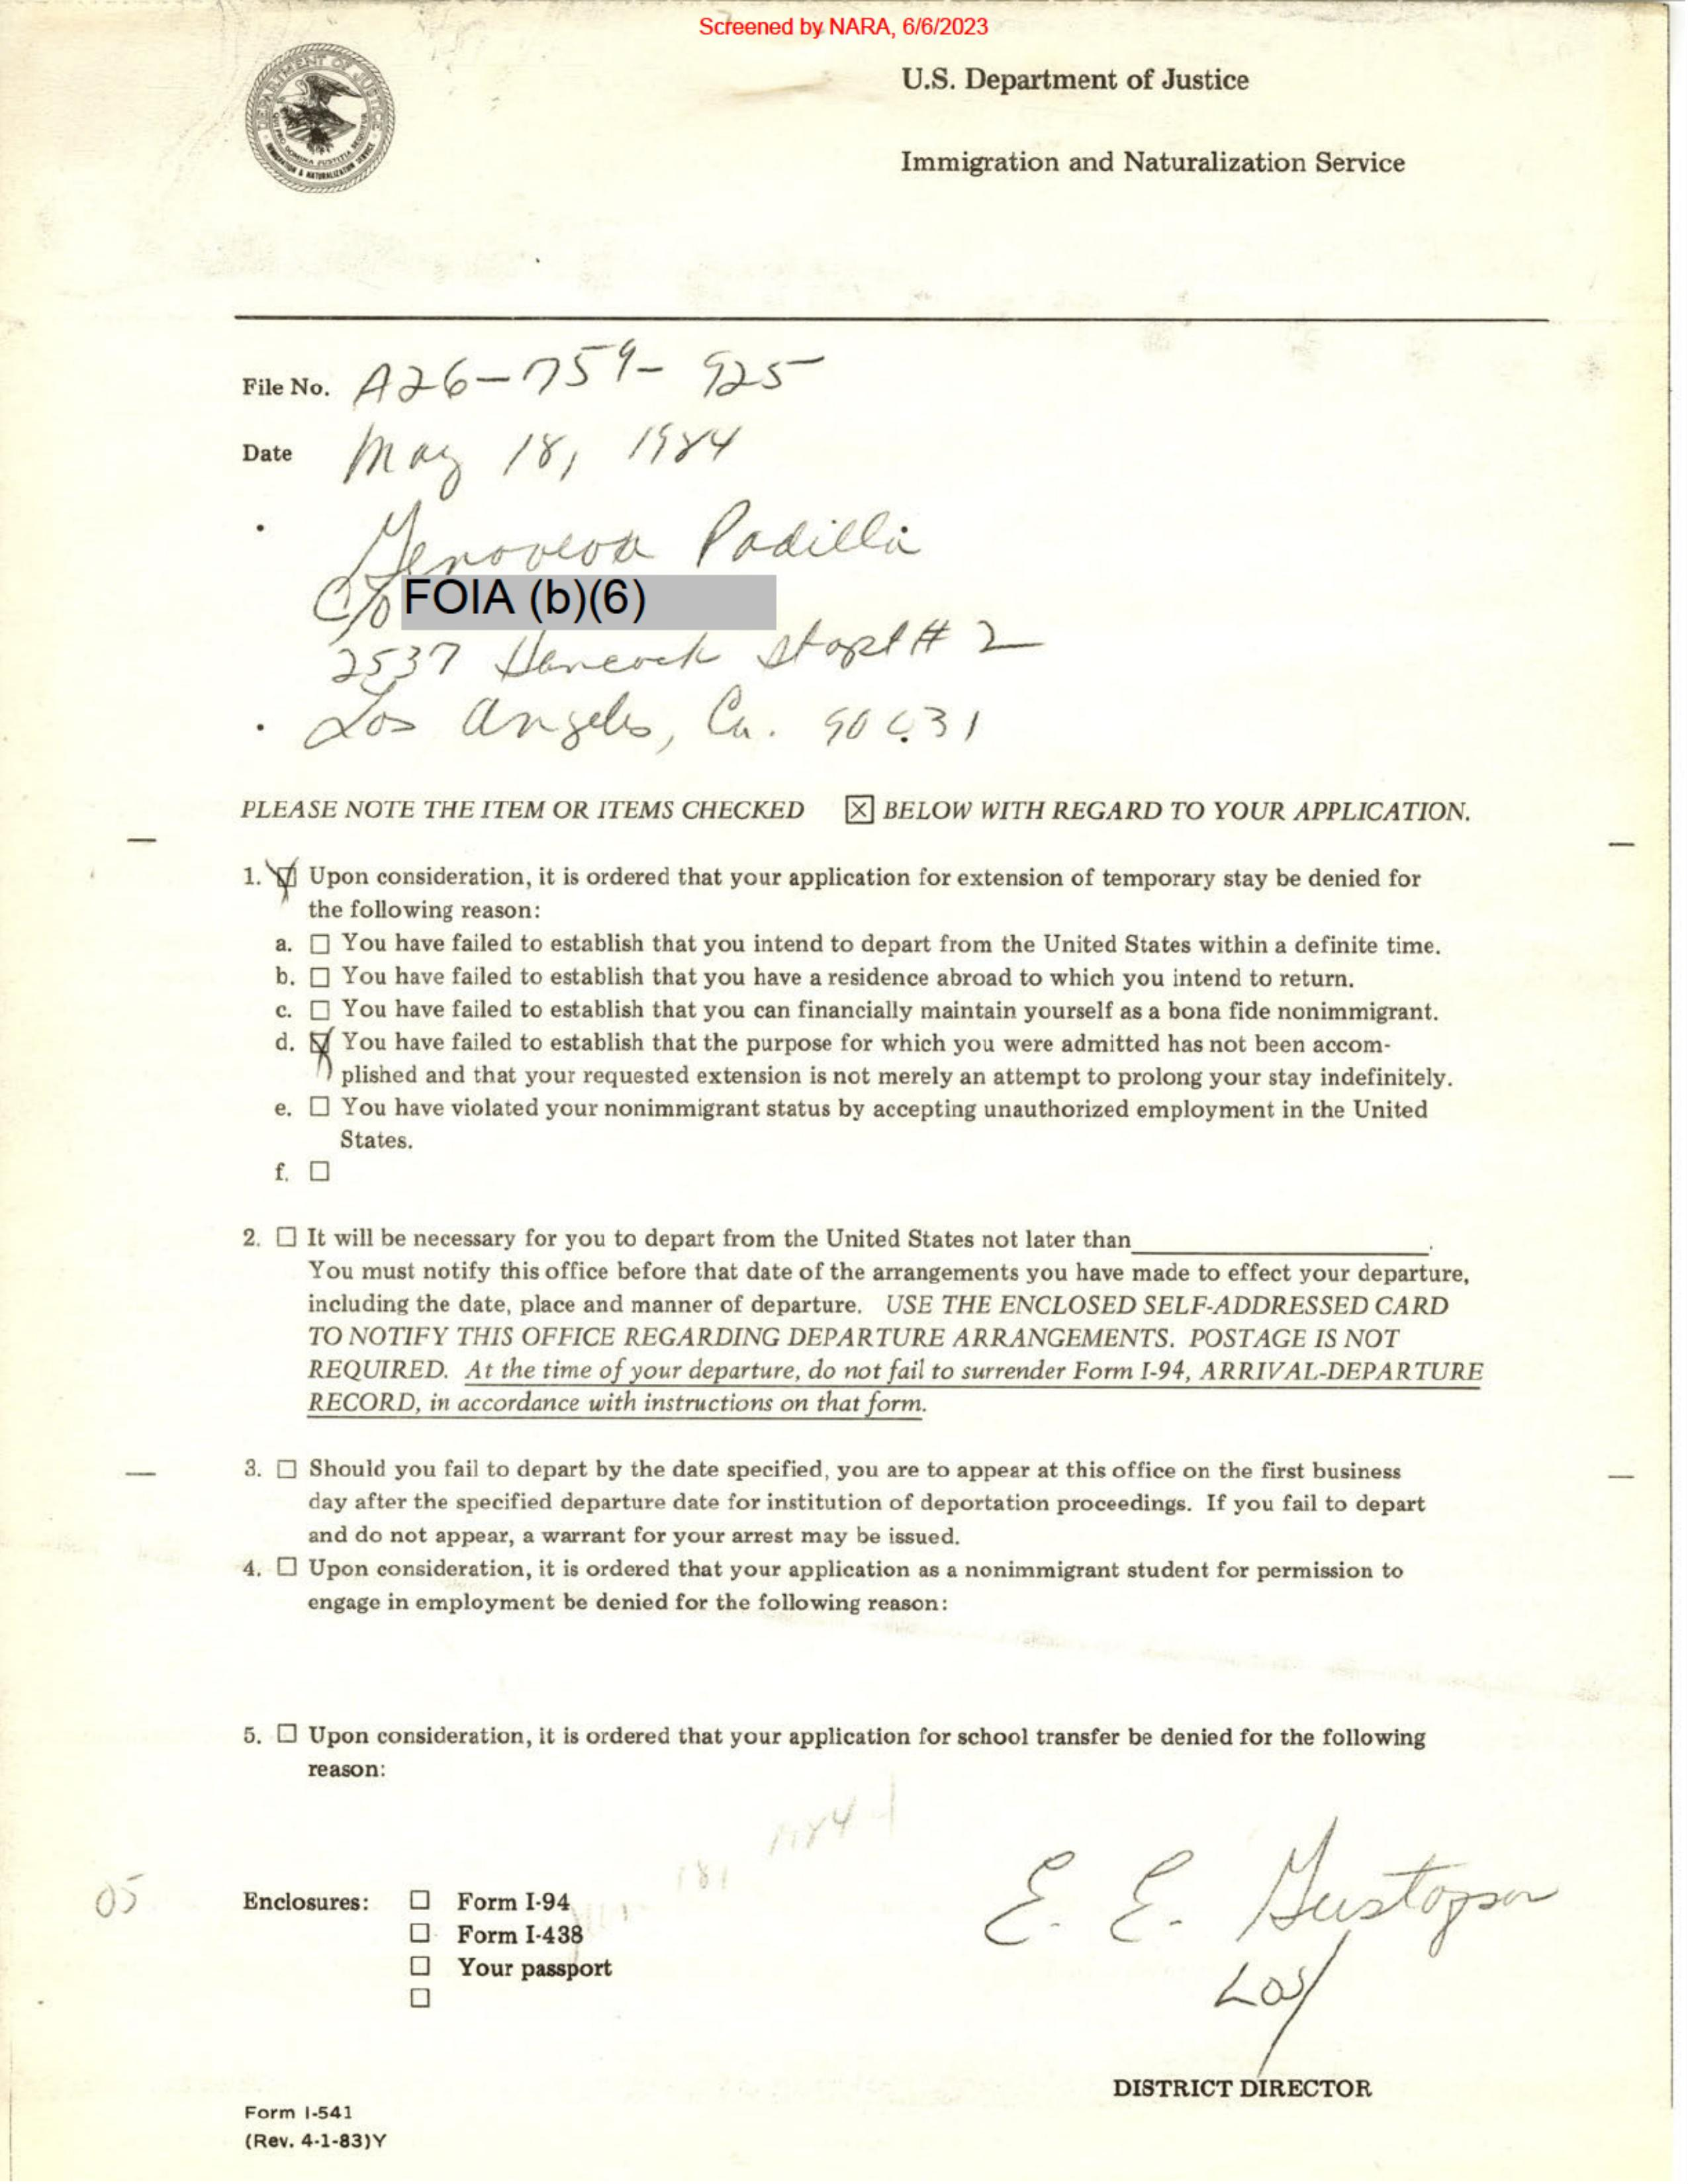 Screened by NARA, 6/6/2023
DEPARTMENT OF JUSTICE
QUI PRO DOMINA JUSTITIA SEQUITUR
IMMIGRATION & NATURALIZATION SERVICE
U.S. Department of Justice
Immigration and Naturalization Service
File No. A26-759-925
Date May 18, 1984
Genoveva Padilla
C/o FOIA (b)(6)
2537 Hancock St apt # 2
Los Angeles, Ca. 90031
PLEASE NOTE THE ITEM OR ITEMS CHECKED ☒ BELOW WITH REGARD TO YOUR APPLICATION.
1. ☑ Upon consideration, it is ordered that your application for extension of temporary stay be denied for
the following reason:
a. ☐ You have failed to establish that you intend to depart from the United States within a definite time.
b. ☐ You have failed to establish that you have a residence abroad to which you intend to return.
c. ☐ You have failed to establish that you can financially maintain yourself as a bona fide nonimmigrant.
d. ☑ You have failed to establish that the purpose for which you were admitted has not been accom-
plished and that your requested extension is not merely an attempt to prolong your stay indefinitely.
e. ☐ You have violated your nonimmigrant status by accepting unauthorized employment in the United
States.
f. ☐
2. ☐ It will be necessary for you to depart from the United States not later than ____________.
You must notify this office before that date of the arrangements you have made to effect your departure,
including the date, place and manner of departure. USE THE ENCLOSED SELF-ADDRESSED CARD
TO NOTIFY THIS OFFICE REGARDING DEPARTURE ARRANGEMENTS. POSTAGE IS NOT
REQUIRED. At the time of your departure, do not fail to surrender Form I-94, ARRIVAL-DEPARTURE
RECORD, in accordance with instructions on that form.
3. ☐ Should you fail to depart by the date specified, you are to appear at this office on the first business
day after the specified departure date for institution of deportation proceedings. If you fail to depart
and do not appear, a warrant for your arrest may be issued.
4. ☐ Upon consideration, it is ordered that your application as a nonimmigrant student for permission to
engage in employment be denied for the following reason:
5. ☐ Upon consideration, it is ordered that your application for school transfer be denied for the following
reason:
05
Enclosures: ☐ Form I-94
☐ Form I-438
☐ Your passport
☐
E. E. Gustafson
DISTRICT DIRECTOR
Form I-541
(Rev. 4-1-83)Y